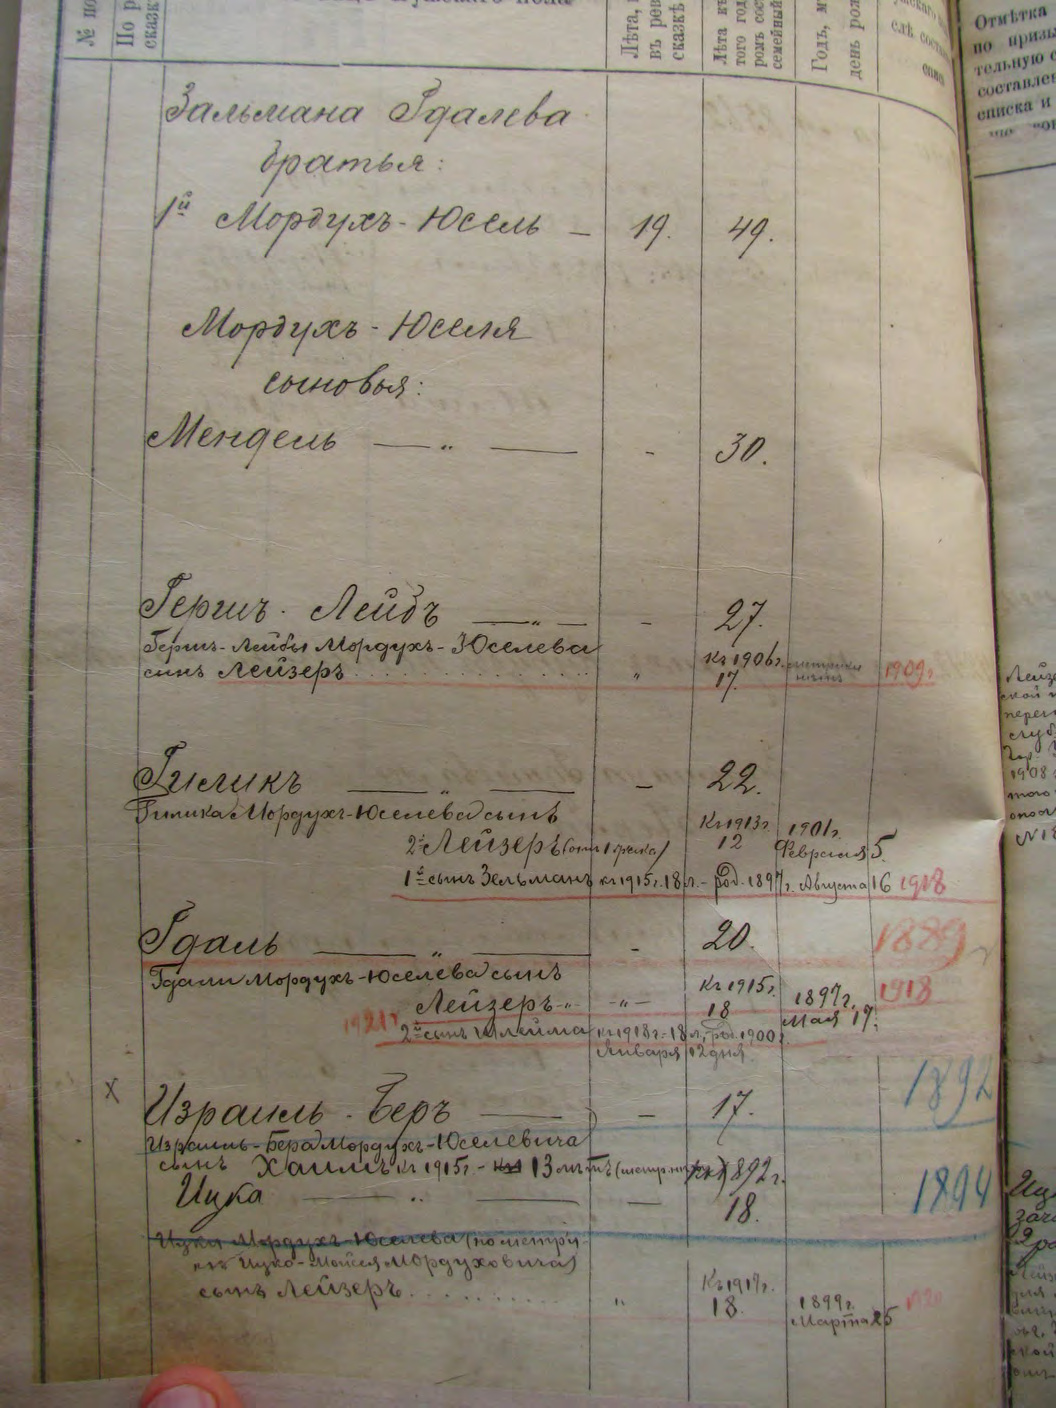 № по
По р
сказк
Лѣта,
въ рев
сказкѣ
Лѣта къ
того год
ромъ сос
семейный
Годъ, м
день рож
слѣ состав
спис
Отмѣтка
по призы
тельную с
составлен
списка и
Зальмана Гдалева
братья:
1й Мордухъ-Юсель — 19. 49.
Мордухъ-Юселя
сыновья:
Мендель — „ — - 30.
Гершъ-Лейбъ — „ — - 27.
Гершъ-Лейбы Мордухъ-Юселева
сынъ Лейзеръ . . . . . . „ Къ 1906г. 17. 1909г.
Гиликъ — „ — — 22.
Гилика Мордухъ-Юселева сынъ
2й Лейзеръ Къ 1913г. 12 1901г. Февраля 5.
1й сынъ Зельманъ къ 1915г. 18 л. - род. 1897г. Августа 16 1918
Гдаль — „ — - 20. 1889
Гдали Мордухъ-Юселева сынъ
Лейзеръ -„- -„- Къ 1915г. 18 1897г. Мая 17. 1918
1921г.
2й сынъ Шлёйма къ 1918г. - 18 л., род. 1900г.
Января 12 дня.
X Израиль-Беръ — — 17. 1892
Израиль-Бера Мордухъ-Юселевича
сынъ Хаимъ къ 1915г. - 13 лѣтъ 1892г.
Ицка — „ — — 18. 1894
Ицки Мордухъ-Юселева (по метри-
Ицко-Мойсея Мордуховича)
сынъ Лейзеръ . . . . . . „ Къ 1917г. 18. 1899г. Марта 25 1920
1908